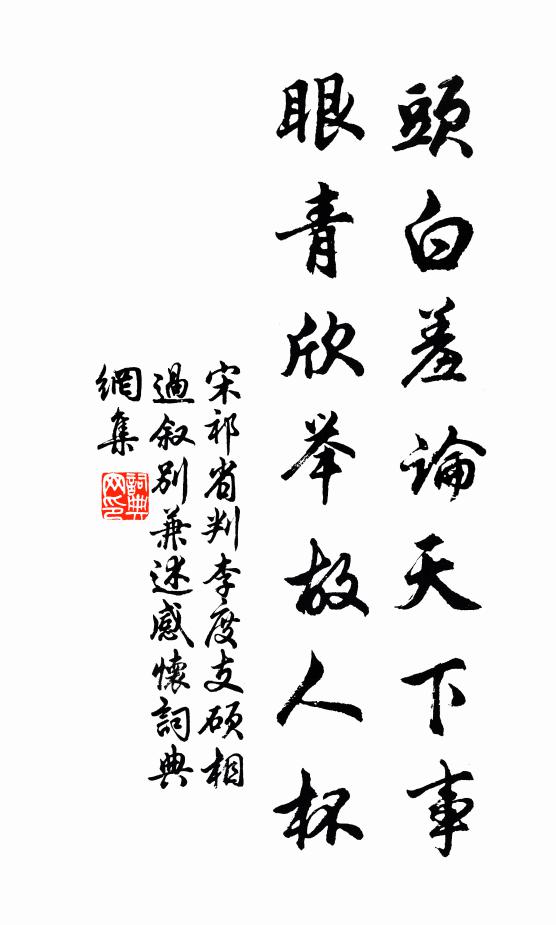 頭白羞論天下事
眼青欣举故人杯
宋祁省判李度支硕相
過叙别兼述感懷詞典
網集
詞典
网印